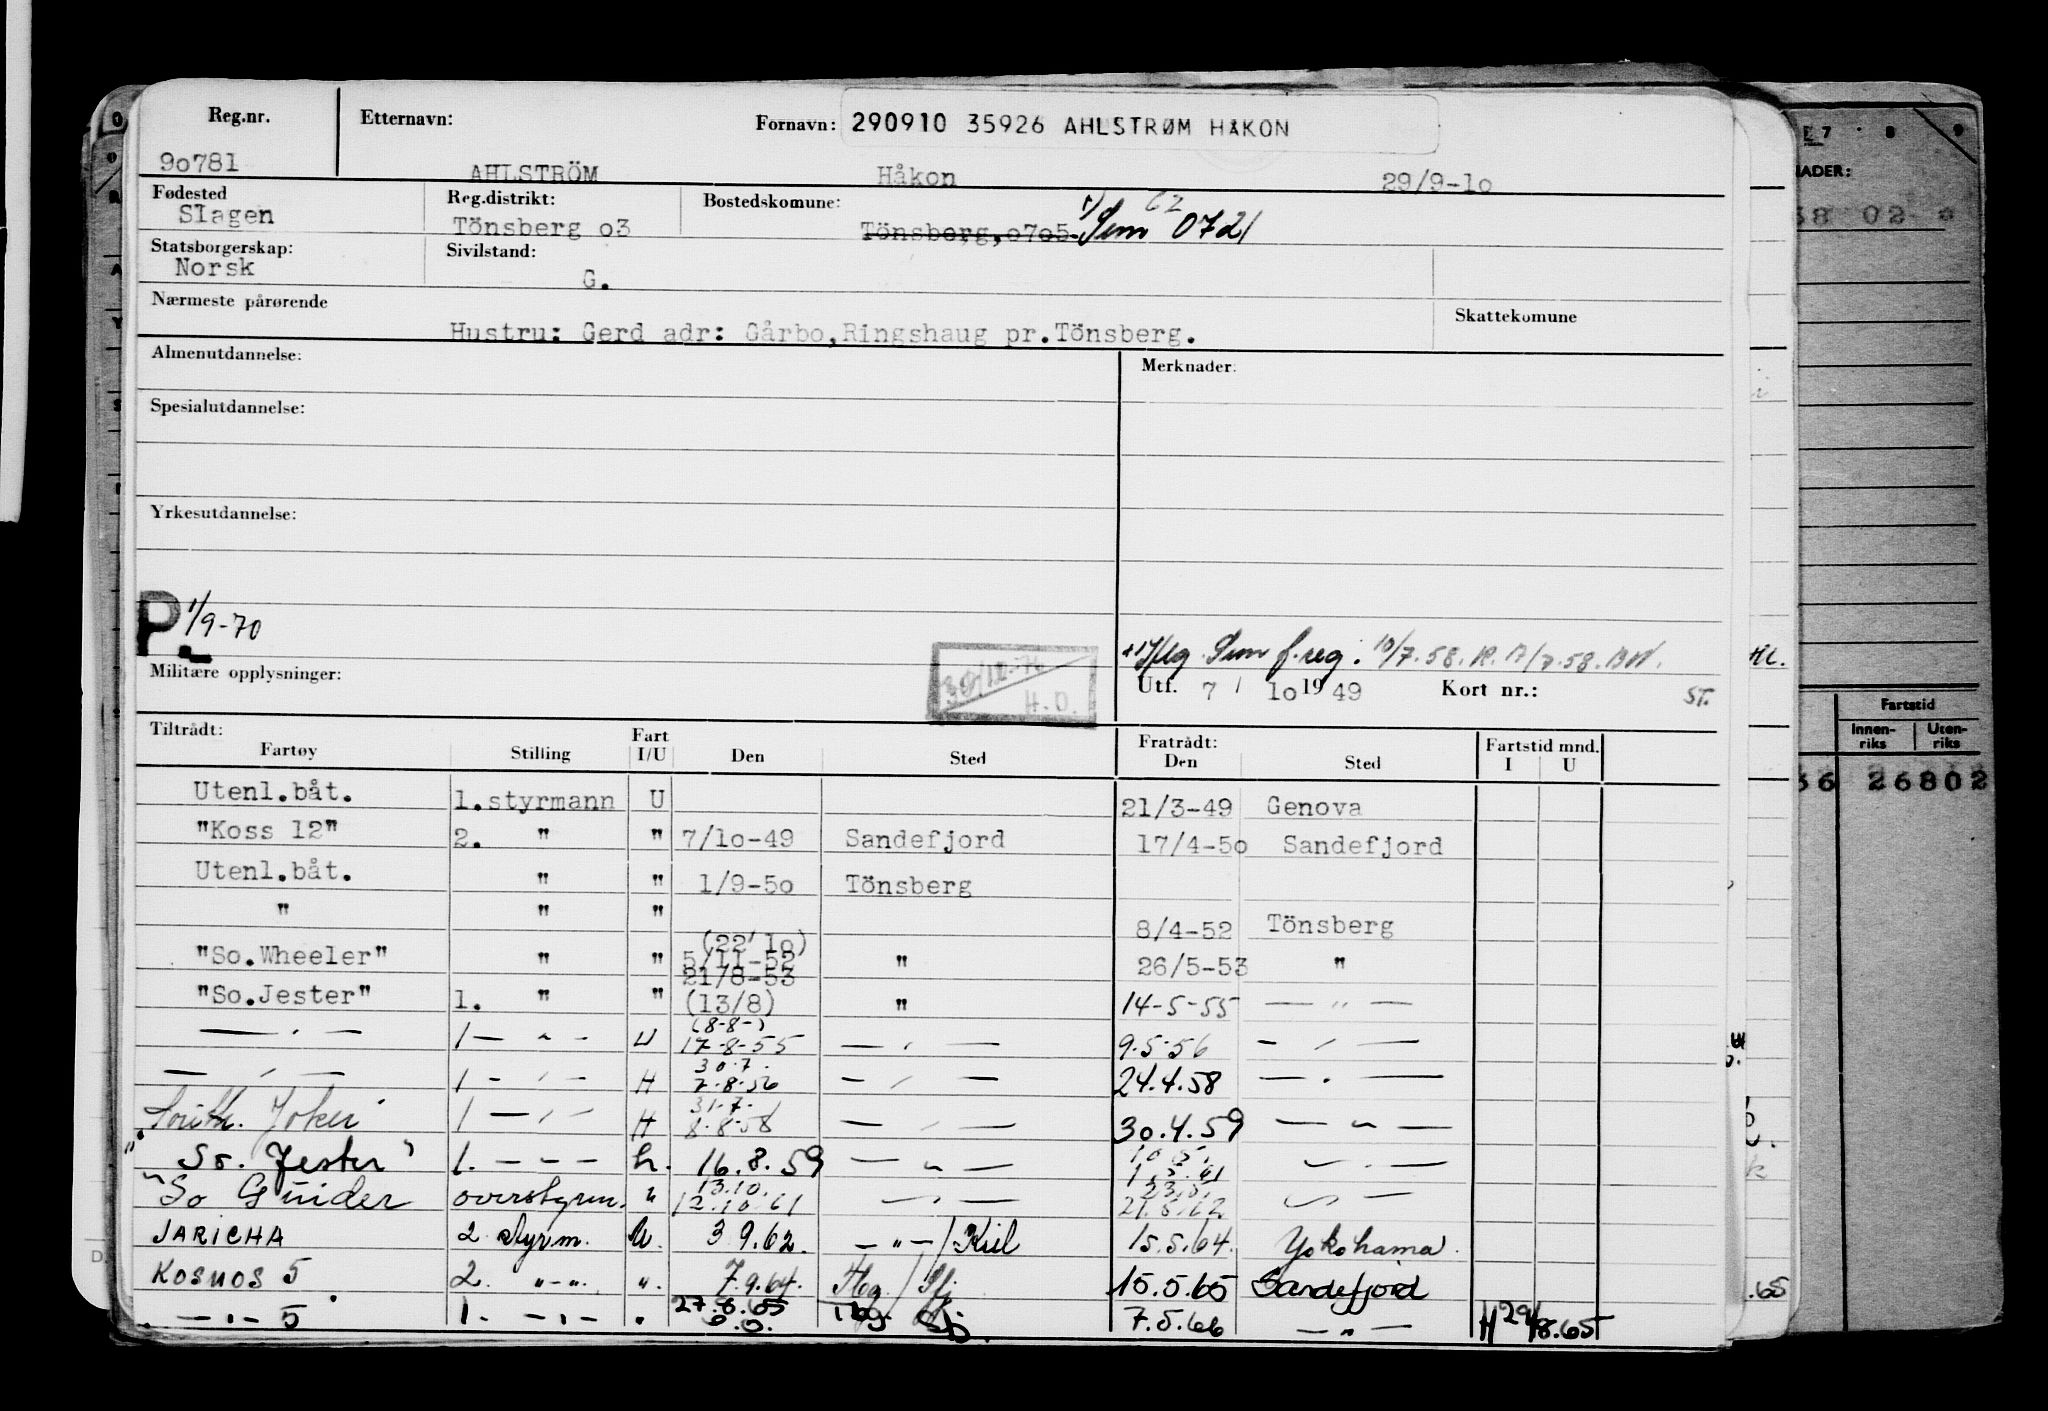 Reg.nr. Etternavn: Fornavn: 290910 35926 AHLSTRØM HÅKON
9o781 AHLSTRÖM Håkon 29/9-1o
Fødested Reg.distrikt: Bostedskomune: 1/ 62
Slagen Tönsberg o3 Tönsberg,o7o5 Sem 0721
Statsborgerskap: Sivilstand:
Norsk G.
Nærmeste pårørende Skattekomune
Hustru: Gerd adr: Gårbo,Ringshaug pr.Tönsberg.
Almenutdannelse: Merknader:
Spesialutdannelse:
Yrkesutdannelse:
P 1/9-70
Sem f.reg. 10/7.58.
Militære opplysninger: H.O. Utf. 7 / 1o 19 49 Kort nr.: ST.
Tiltrådt: Fratrådt:
Fartøy Stilling Fart I/U Den Sted Den Sted Fartstid mnd. I U
Utenl.båt. 1.styrmann U 21/3-49 Genova
"Koss 12" 2. " " 7/1o-49 Sandefjord 17/4-5o Sandefjord
Utenl.båt. " " 1/9-5o Tönsberg
" " " 8/4-52 Tönsberg
(22/1o)
"So.Wheeler" " " 5/11-52 " 26/5-53 "
21/8-53
"So.Jester" 1. " " (13/8) " 14-5-55 — " —
(8-8-)
— " — 1 — " — U 17-8-55 — " — 9.5.56 — " —
30.7.
— " — 1 — " — H 7.8.56 — " — 24.4.58 — " —
31.7.
South. Joker 1 — " — H 8.8.58 — " — 30.4.59 — " —
"So. Jester" 1. — " — h. 16.8.59 — " — 1.5.61 — " —
13.10.
"So Guider overstyrm. " 12.10.61 — " — 21.5.62 — " —
JARICHA 2 styrm. U. 3.9.62. — " — / Kiel 15.5.64. Yokohama.
KOSMOS 5 2. " — " . " . 7.9.64. Tbg / Sfj 15.5.65 Sandefjord
— " — 5 1. — " — " 27.8.65 Tbg. Sfj. 7.5.66 — " — H 29/8.65
ADER:
38 02 0
Fartstid
Innenriks Utenriks
36 26802